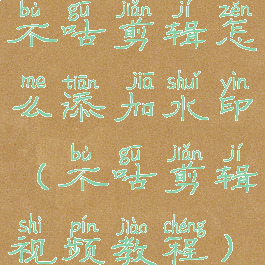 bù gū jiǎn jí zěn
不咕剪辑怎
me tiān jiā shuǐ yìn
么添加水印
bù gū jiǎn jí
（不咕剪辑
shì pín jiào chéng
视频教程）